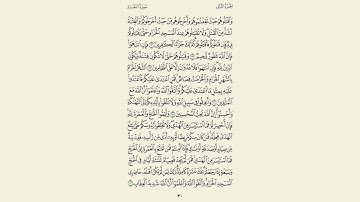 الجزء الثاني سورة البقرة
وَٱقْتُلُوهُمْ حَيْثُ ثَقِفْتُمُوهُمْ وَأَخْرِجُوهُم مِّنْ حَيْثُ أَخْرَجُوكُمْ وَٱلْفِتْنَةُ
أَشَدُّ مِنَ ٱلْقَتْلِ وَلَا تُقَٰتِلُوهُمْ عِندَ ٱلْمَسْجِدِ ٱلْحَرَامِ حَتَّىٰ يُقَٰتِلُوكُمْ
فِيهِ فَإِن قَٰتَلُوكُمْ فَٱقْتُلُوهُمْ كَذَٰلِكَ جَزَآءُ ٱلْكَٰفِرِينَ ١٩١ فَإِنِ ٱنتَهَوْا۟
فَإِنَّ ٱللَّهَ غَفُورٌ رَّحِيمٌ ١٩٢ وَقَٰتِلُوهُمْ حَتَّىٰ لَا تَكُونَ فِتْنَةٌ وَيَكُونَ
ٱلدِّينُ لِلَّهِ فَإِنِ ٱنتَهَوْا۟ فَلَا عُدْوَٰنَ إِلَّا عَلَى ٱلظَّٰلِمِينَ ١٩٣ ٱلشَّهْرُ
ٱلْحَرَامُ بِٱلشَّهْرِ ٱلْحَرَامِ وَٱلْحُرُمَٰتُ قِصَاصٌ فَمَنِ ٱعْتَدَىٰ عَلَيْكُمْ فَٱعْتَدُوا۟
عَلَيْهِ بِمِثْلِ مَا ٱعْتَدَىٰ عَلَيْكُمْ وَٱتَّقُوا۟ ٱللَّهَ وَٱعْلَمُوٓا۟ أَنَّ ٱللَّهَ مَعَ
ٱلْمُتَّقِينَ ١٩٤ وَأَنفِقُوا۟ فِى سَبِيلِ ٱللَّهِ وَلَا تُلْقُوا۟ بِأَيْدِيكُمْ إِلَى ٱلتَّهْلُكَةِ
وَأَحْسِنُوٓا۟ إِنَّ ٱللَّهَ يُحِبُّ ٱلْمُحْسِنِينَ ١٩٥ وَأَتِمُّوا۟ ٱلْحَجَّ وَٱلْعُمْرَةَ لِلَّهِ
فَإِنْ أُحْصِرْتُمْ فَمَا ٱسْتَيْسَرَ مِنَ ٱلْهَدْىِ وَلَا تَحْلِقُوا۟ رُءُوسَكُمْ حَتَّىٰ يَبْلُغَ
ٱلْهَدْىُ مَحِلَّهُۥ فَمَن كَانَ مِنكُم مَّرِيضًا أَوْ بِهِۦٓ أَذًى مِّن رَّأْسِهِۦ فَفِدْيَةٌ
مِّن صِيَامٍ أَوْ صَدَقَةٍ أَوْ نُسُكٍ فَإِذَآ أَمِنتُمْ فَمَن تَمَتَّعَ بِٱلْعُمْرَةِ إِلَى ٱلْحَجِّ
فَمَا ٱسْتَيْسَرَ مِنَ ٱلْهَدْىِ فَمَن لَّمْ يَجِدْ فَصِيَامُ ثَلَٰثَةِ أَيَّامٍ فِى ٱلْحَجِّ
وَسَبْعَةٍ إِذَا رَجَعْتُمْ تِلْكَ عَشَرَةٌ كَامِلَةٌ ذَٰلِكَ لِمَن لَّمْ يَكُنْ أَهْلُهُۥ حَاضِرِى
ٱلْمَسْجِدِ ٱلْحَرَامِ وَٱتَّقُوا۟ ٱللَّهَ وَٱعْلَمُوٓا۟ أَنَّ ٱللَّهَ شَدِيدُ ٱلْعِقَابِ ١٩٦
٣٠